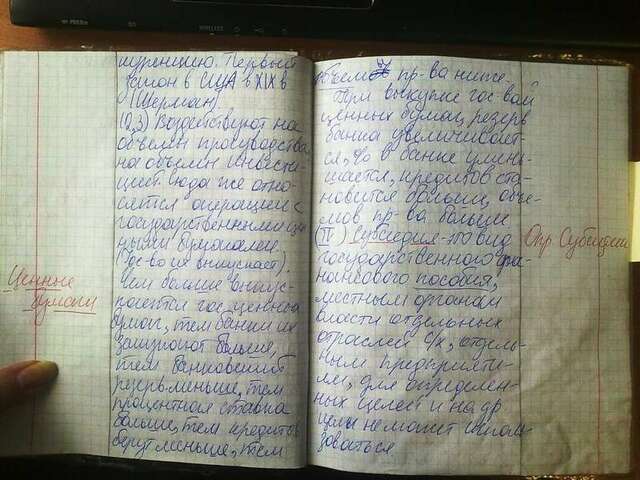 куренцию. Первый
закон в США в XIX в
(Шерман)
(0,3) Воздействуют на
объемы производства
на объемы инвести-
ций. Сюда же отно-
сятся операции с
государственными цен-
ными бумагами.
(гос-во их выпускает).
Ценные
бумаги
Чем больше выпус-
кается гос. ценных
бумаг, тем банки их
закупают больше,
тем банковский
резерв меньше, тем
процентная ставка
больше, тем кредитов
берут меньше, тем
объемов пр-ва ниже.
При выкупе гос-вом
ценных бумаг, резерв
банка увеличивает-
ся, % в банке умень-
шается, кредитов ста-
новится больше, объе-
мов пр-ва больше
(II) Субсидия - это вид
Опр Субсидии
государственного фи-
нансового пособия,
местным органам
власти отдельных
отраслей с/х, отдель-
ным предприяти-
ям, для определен-
ных целей и на др
цели не может исполь-
зоваться.